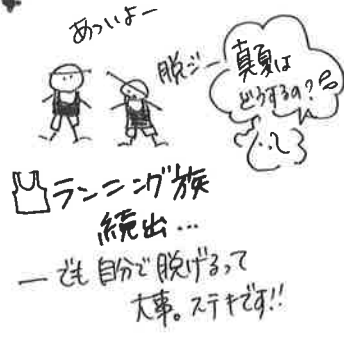 あっいよー
脱ジー
真夏は
どうするの?
ランニング族
続出...
ーでも自分で脱げるって
大事。ステキです!!